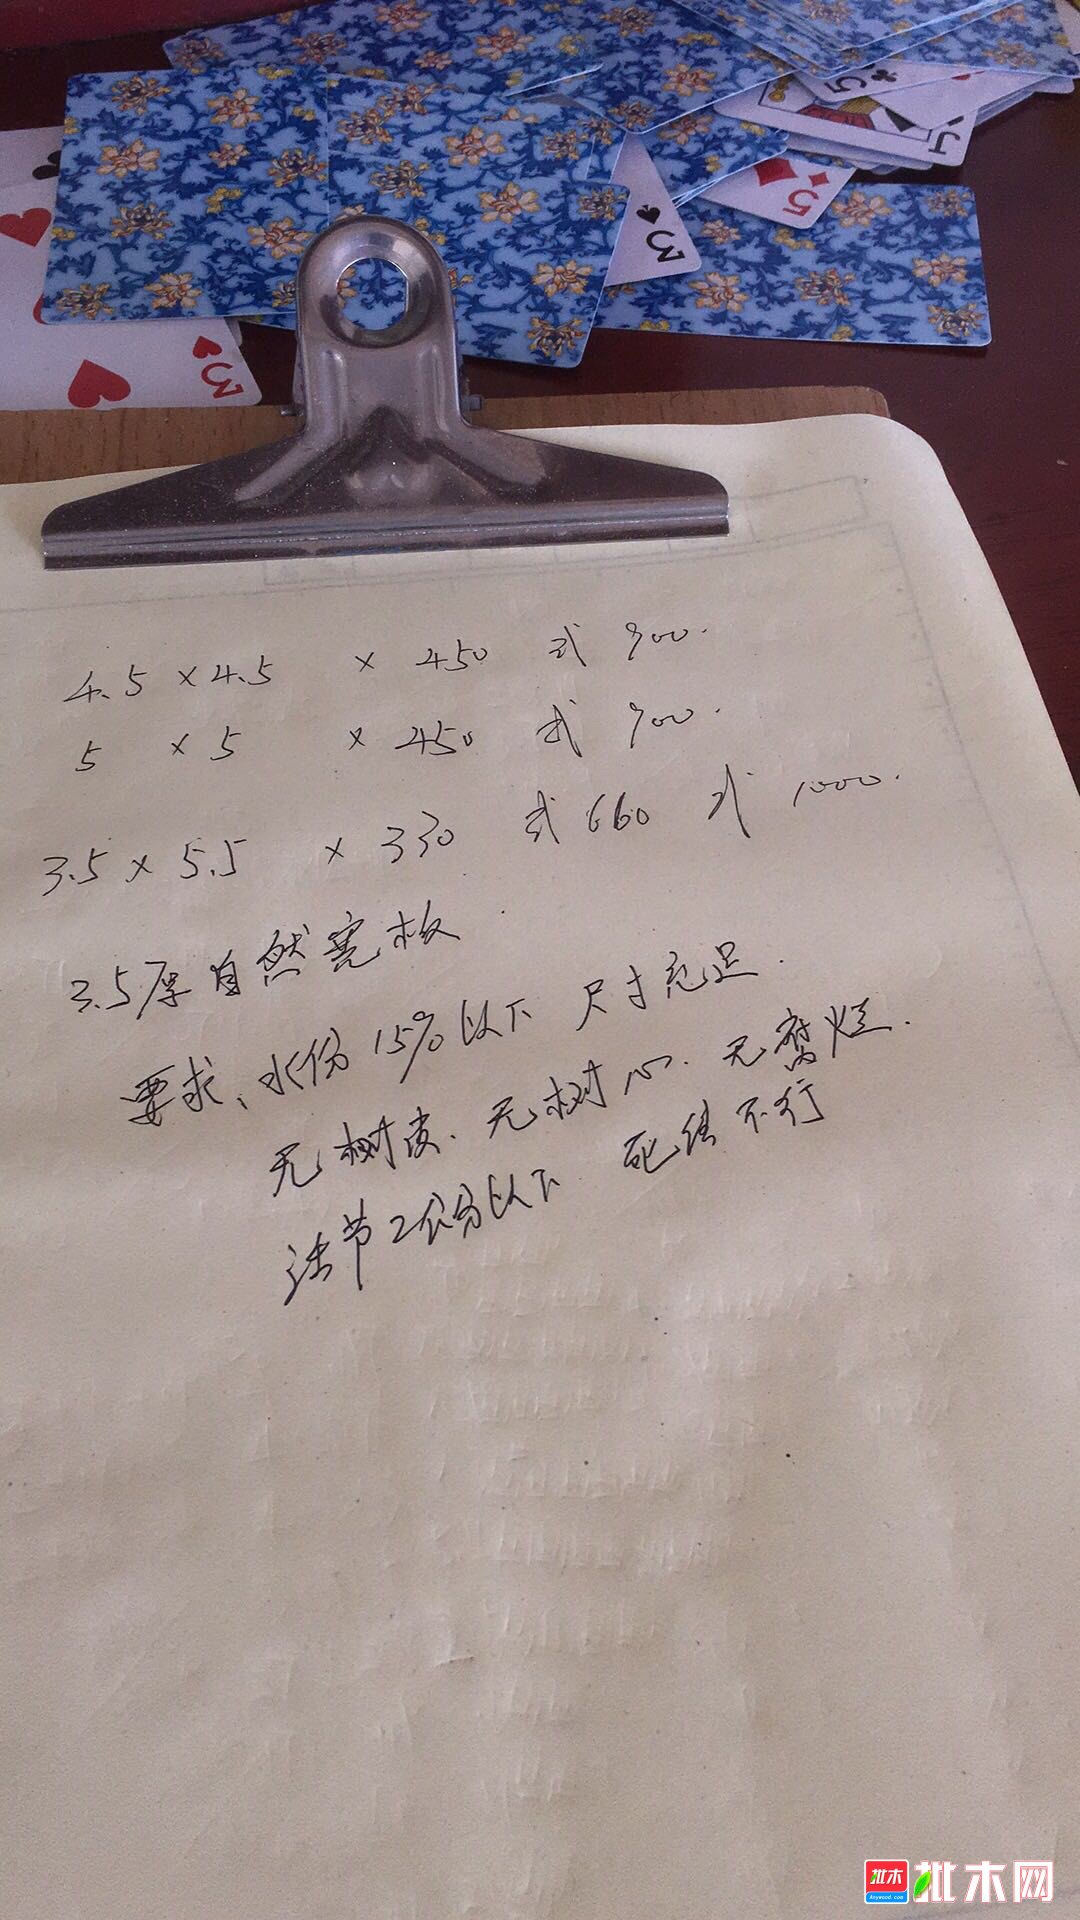 5
4
3
5
3
4.5 × 4.5 × 450 或 900.
5 × 5 × 450 或 900.
3.5 × 5.5 × 330 或 660 或 1000.
3.5厚自然宽板.
要求、水份15%以下 尺寸充足.
无树皮.无树心.无腐烂.
活节2公分以下 死结不行
批木
Anywood.com
批木网